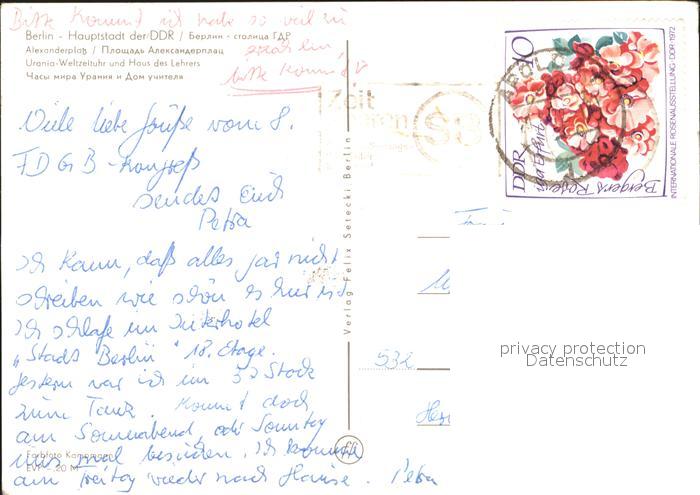 Bitte kommt ich habe so viel zu
erzählen
bitte kommt
Berlin - Hauptstadt der DDR / Берлин - столица ГДР
Alexanderplatz / Площадь Александерплац
Urania-Weltzeituhr und Haus des Lehrers
Часы мира Урания и Дом учителя
Viele liebe Grüße vom 8.
FDGB-Kongreß
sendet Euch
Petra
Ich kann, daß alles gar nicht
schreiben wie schön es hier ist
Ich schlafe im Interhotel
„Stadt Berlin" 18. Etage.
gestern war ich im 37 Stock
zum Tanz. Kommt doch
am Sonnabend, oder Sonntag
uns mal besuchen. Ich komme
am Freitag wieder nach Hause. Petra
Farbfoto Kampmann
EVP -.20 M
Verlag Felix Setecki Berlin
Zeit
sparen
53
10
DDR
Bergers Rose
INTERNATIONALE ROSENAUSSTELLUNG · DDR 1972
532
privacy protection
Datenschutz